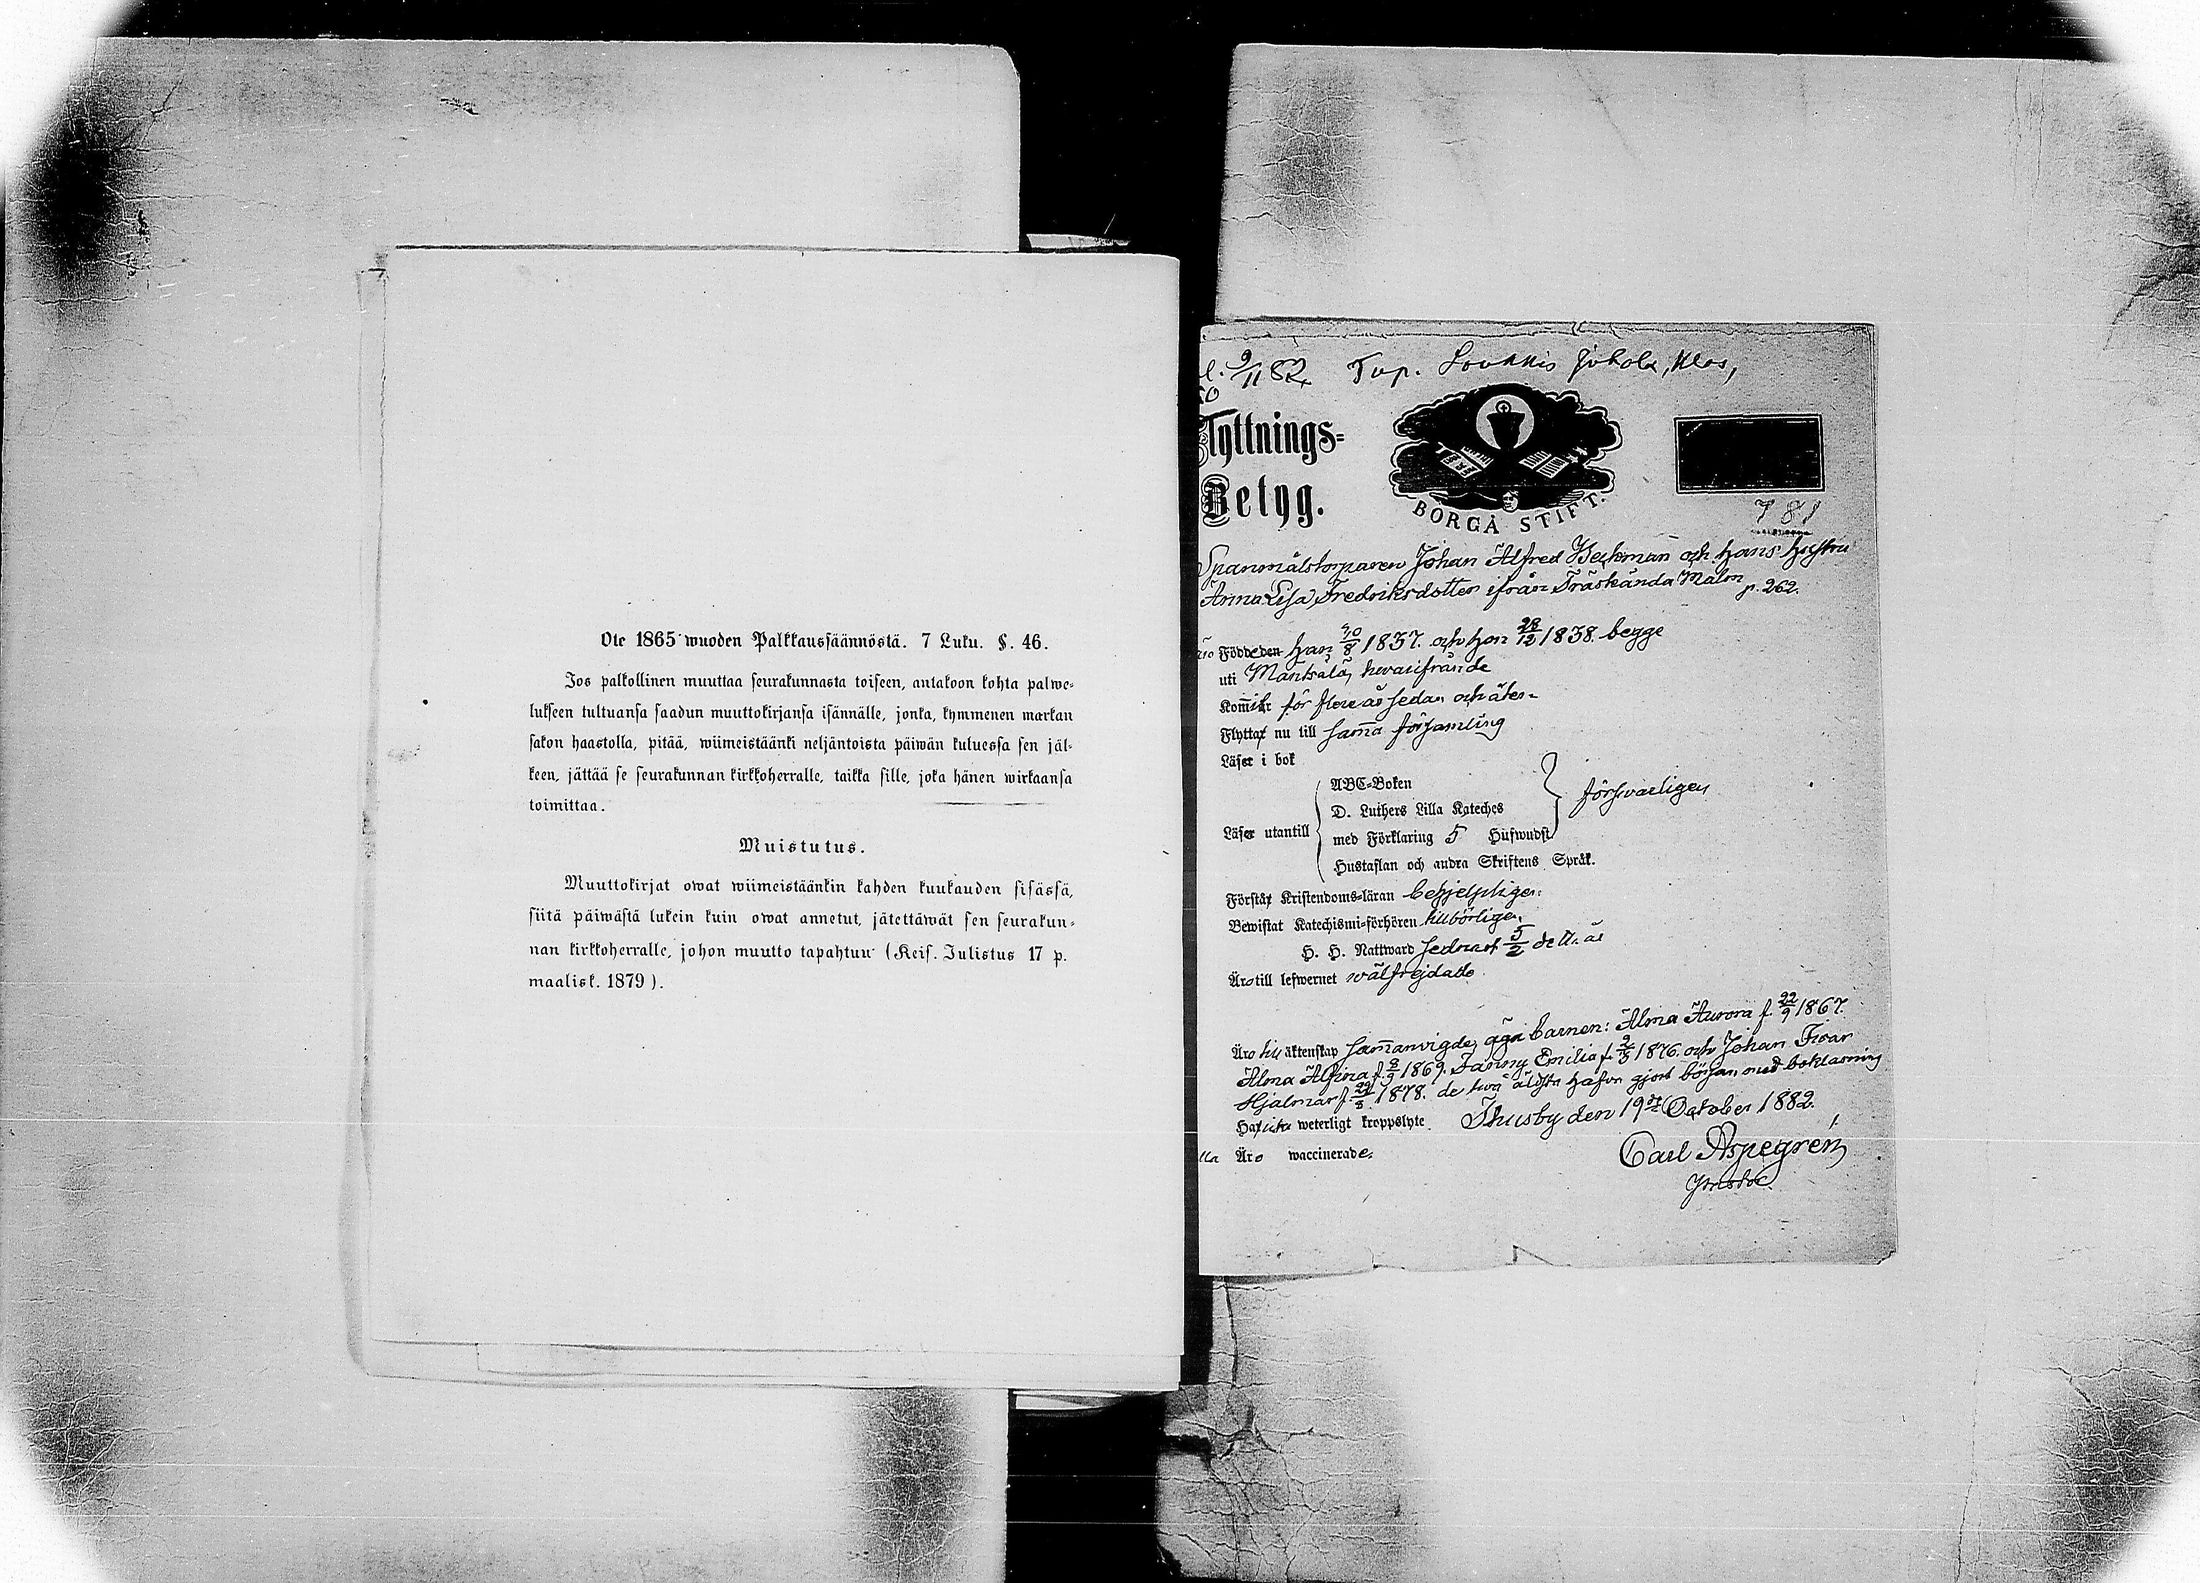 Ote 1865 wuoden Palkkaussäännöstä. 7 Luku. §. 46.
Jos palkollinen muuttaa seurakunnasta toiseen, antakoon kohta palwe-
lukseen tultuansa saadun muuttokirjansa isännälle, jonka, kymmenen markan
sakon haastolla, pitää, wiimeistäänki neljäntoista päiwän kuluessa sen jäl-
keen, jättää se seurakunnan kirkkoherralle, taikka sille, joka hänen wirkaansa
toimittaa.
Muistutus.
Muuttokirjat owat wiimeistäänkin kahden kuukauden sisässä,
siitä päiwästä lukein kuin owat annetut, jätettäwät sen seurakun-
nan kirkkoherralle, johon muutto tapahtuu (Keis. Julistus 17 p.
maalisk. 1879).
9/11 82. Tup. Jokola, Klas,
Flyttnings-
Betyg.
BORGÅ STIFT.
781
Spanmålstorparen Johan Alfred Beckman och hans hustru
Anna Lisa Fredriksdotter ifrån Träskända Malm p. 262.
Födde den han 1837. och hon 28/12 1838. begge
uti Mäntsälä, hvarifrån de
Kommit för flere år sedan och åter-
Flytta nu till samma församling
Läser i bok
ABC-Boken
D. Luthers Lilla Kateches
Läser utantill
med Förklaring 5 Hufwudst
försvarligen
Hustaflan och andra Skriftens Språk.
Förstå Kristendoms-läran behjelpligen:
Bewistat Katechismi-förhören tillbörligen,
H. H. Nattward sednast 5/2 detta år
Äro till lefwernet wälfrejdade
Äro till äktenskap sammanvigde, äga barnen: Alma Aurora f. 22/9 1867.
Alma Alfina f. 1869. Fanny Emilia f. 1876. och Johan Ivar
Hjalmar f. 1878. de två äldsta hafva gjort början med bokläsning
Ha icke weterligt kroppslyte. Thusby den 19de Oktober 1882.
Äro waccinerade.
Carl Aspegrén